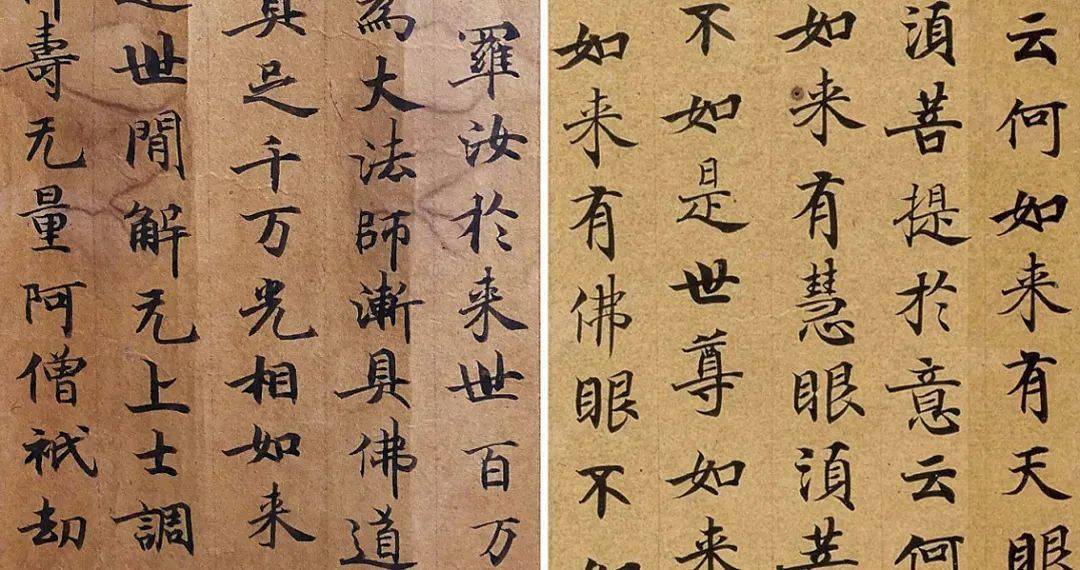 羅汝於来世百万
為大法師漸具佛道
具足千万光相如来
世閒解无上士調
壽无量阿僧祇劫
云何如来有天眼
湏菩提於意云何
如来有慧眼湏菩
不如是世尊如来
如来有佛眼不